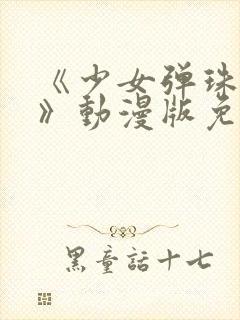 《少女弹珠
》動漫版免
黑童話十七